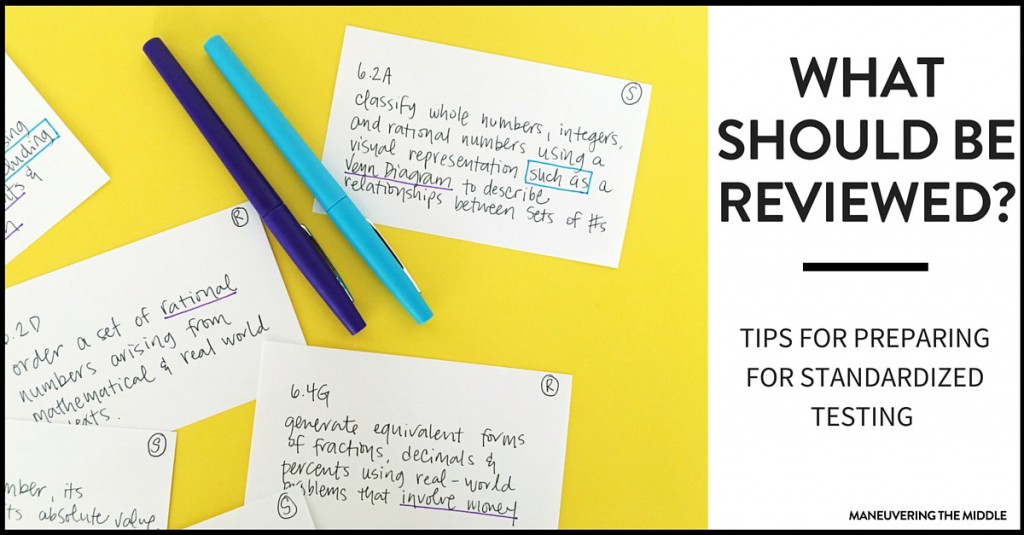 sing
cluding
ts &
6.2A
Ⓢ
classify whole numbers, integers,
and rational numbers using a
visual representation such as a
Venn Diagram to describe
relationships between sets of #s
Ⓡ
6.2D
order a set of rational
numbers arising from
mathematical & real world
texts.
6.4G
Ⓡ
generate equivalent forms
of fractions, decimals &
percents using real-world
problems that involve money
Ⓢ
mber, its
ts absolute value,
Ⓢ
WHAT
SHOULD BE
REVIEWED?
TIPS FOR PREPARING
FOR STANDARDIZED
TESTING
MANEUVERING THE MIDDLE